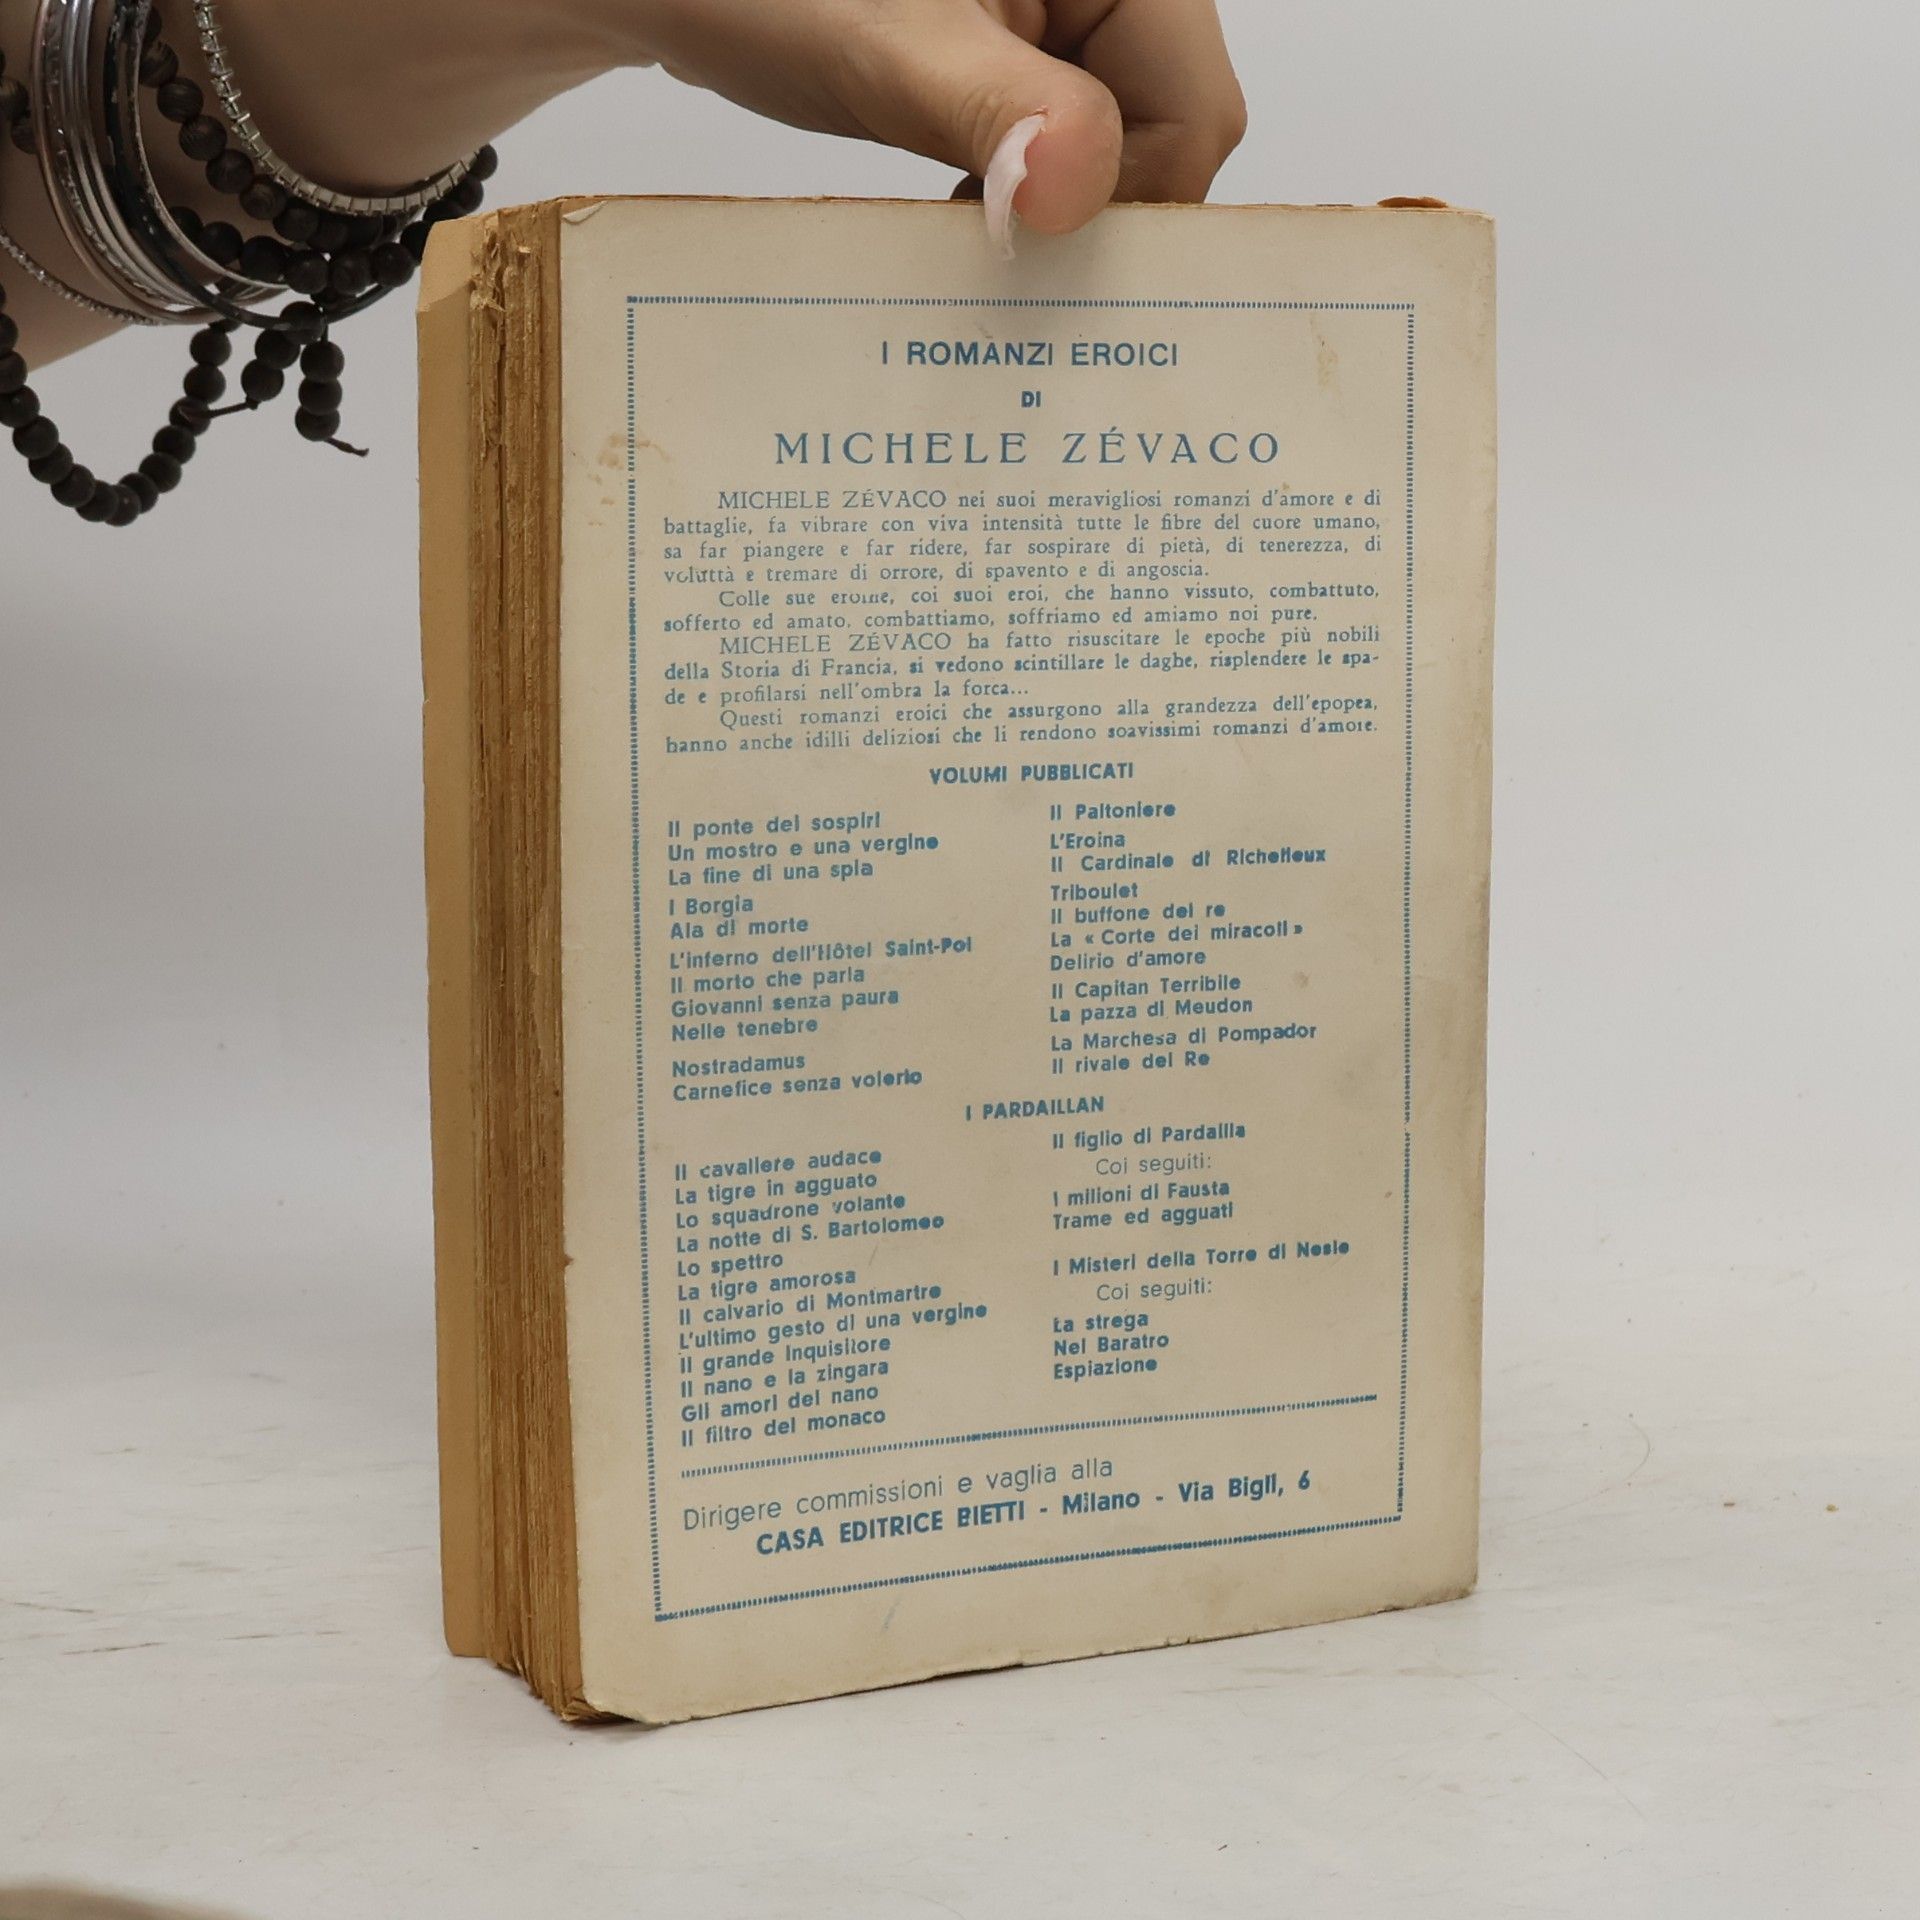 I ROMANZI EROICI
DI
MICHELE ZÉVACO
MICHELE ZÉVACO nei suoi meravigliosi romanzi d'amore e di
battaglie, fa vibrare con viva intensità tutte le fibre del cuore umano,
sa far piangere e far ridere, far sospirare di pietà, di tenerezza, di
voluttà e tremare di orrore, di spavento e di angoscia.
Colle sue eroine, coi suoi eroi, che hanno vissuto, combattuto,
sofferto ed amato, combattiamo, soffriamo ed amiamo noi pure.
MICHELE ZÉVACO ha fatto risuscitare le epoche più nobili
della Storia di Francia, si vedono scintillare le daghe, risplendere le spa-
de e profilarsi nell'ombra la forca...
Questi romanzi eroici che assurgono alla grandezza dell'epopea,
hanno anche idilli deliziosi che li rendono soavissimi romanzi d'amore.
VOLUMI PUBBLICATI
Il ponte dei sospiri
Un mostro e una vergine
La fine di una spia
I Borgia
Ala di morte
L'inferno dell'Hôtel Saint-Pol
Il morto che parla
Giovanni senza paura
Nelle tenebre
Nostradamus
Carnefice senza volerlo
Il Paltoniere
L'Eroina
Il Cardinale di Richelieux
Triboulet
Il buffone del re
La « Corte dei miracoli »
Delirio d'amore
Il Capitan Terribile
La pazza di Meudon
La Marchesa di Pompador
Il rivale del Re
I PARDAILLAN
Il cavaliere audace
La tigre in agguato
Lo squadrone volante
La notte di S. Bartolomeo
Lo spettro
La tigre amorosa
Il calvario di Montmartre
L'ultimo gesto di una vergine
Il grande Inquisitore
Il nano e la zingara
Gli amori del nano
Il filtro del monaco
Il figlio di Pardailla
Coi seguiti:
I milioni di Fausta
Trame ed agguati
I Misteri della Torre di Nesle
Coi seguiti:
La strega
Nel Baratro
Espiazione
Dirigere commissioni e vaglia alla
CASA EDITRICE BIETTI - Milano - Via Bigli, 6